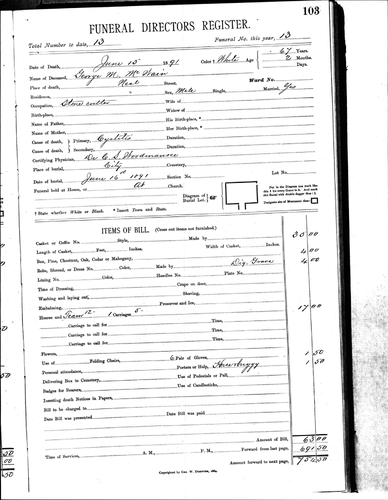 103
FUNERAL DIRECTORS REGISTER.
Total Number to date, 13 Funeral No. this year, 13
Date of Death, June 15 1891 Color † White Age 67 Years.
2 Months.
Days.
Name of Deceased, George M.
Place of death, Street, Ward No.
Residence, Sex, Male Single, Married, Yes
Occupation, Stone cutter Wife of
Birthplace, Widow of
Name of Father, His Birthplace,
Name of Mother, Her Birthplace,
Cause of death, Primary, Cystitis Duration,
Cause of death, Secondary, Duration,
Certifying Physician, Dr C. S. Woodmancee
Place of burial, City
Date of burial, June 16 1891 Section No. Lot No.
Funeral held at House, or At Church.
Diagram of Burial Lot
† State whether White or Black. * Insert Town and State.
ITEMS OF BILL. (Cross out items not furnished.)
Casket or Coffin No. Style, Made by 35 00
Length of Casket, Feet, Inches. Width of Casket, Inches.
Box, Pine, Chestnut, Oak, Cedar or Mahogany, 4 00
Robe, Shroud, or Dress No. Color, Made by Dig. Grave 4 00
Lining No. Color, Handles No. Plate No.
Time of Dressing, Crape on door,
Washing and laying out, Shaving,
Embalming, Preserver and Ice,
Hearse and Team 12- 1 Carriages 5- 17 00
Carriage to call for Time,
Carriage to call for Time,
Carriage to call for Time,
Carriage to call for Time,
Flowers,
Use of Folding Chairs, 6 Pair of Gloves, 1 50
Personal attendance, Porters or Help, 1 50
Delivering Box to Cemetery, Use of Pedestals or Pall,
Badges for Bearers, Use of Candlesticks,
Inserting death Notices in Papers,
Bill to be charged to
Date Bill was presented Date Bill was paid
Amount of Bill, 63 00
Forward from last page, 691 50
Time of Services, A. M., P. M. Amount forward to next page, 754 50